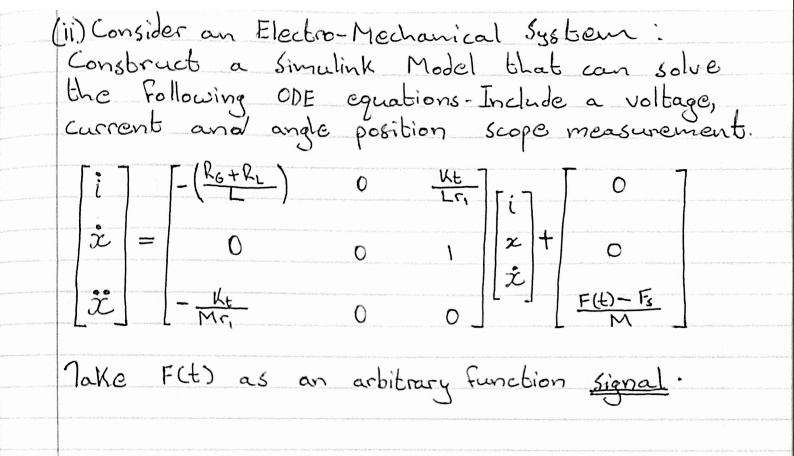 (ii) Consider an Electro-Mechanical System :
Construct a Simulink Model that can solve
the following ODE equations - Include a voltage,
current and angle position scope measurement.
[i̇ ẋ ẍ] = [-(R_G + R_L / L) 0 K_t / L r_1; 0 0 1; -K_t / M r_1 0 0] [i x ẋ] + [0 0 F(t) - F_s / M]
Take F(t) as an arbitrary function signal.